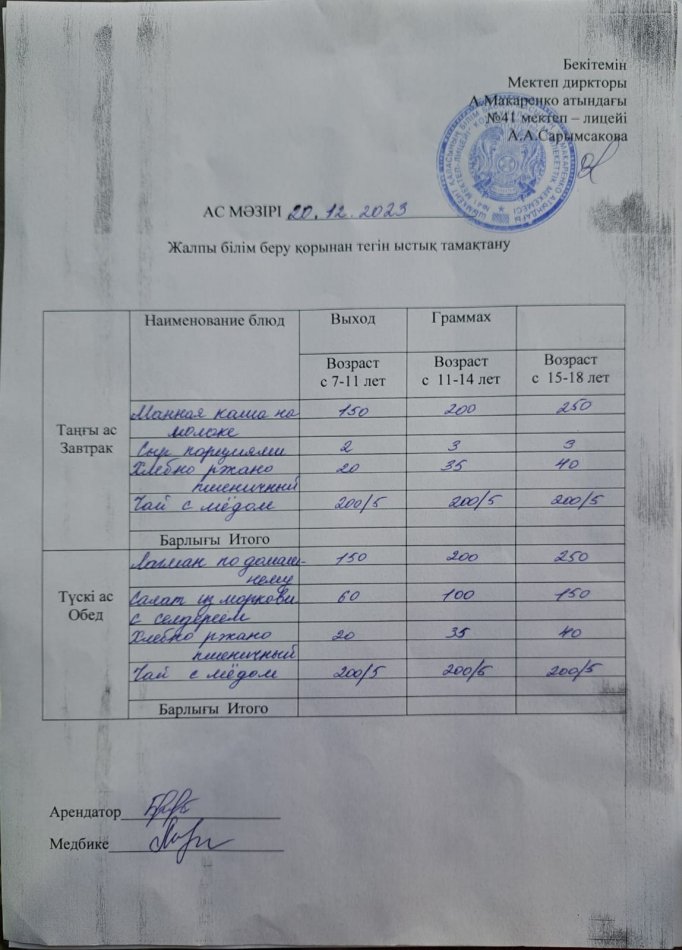 Бекітемін
Мектеп диркторы
А.Макаренко атындағы
№41 мектеп – лицейі
А.А.Сарымсакова
АС МӘЗІРІ 20.12.2023
Жалпы білім беру қорынан тегін ыстық тамақтану
Наименование блюд Выход Граммах
Возраст Возраст Возраст
с 7-11 лет с 11-14 лет с 15-18 лет
Таңғы ас
Завтрак
Манная каша на 150 200 250
молоке
Сыр порциями 2 3 3
Хлебно ржано 20 35 40
пшеничный
Чай с мёдом 200/5 200/5 200/5
Барлығы Итого
Түскі ас
Обед
Лагман по домаш- 150 200 250
нему
Салат из моркови 60 100 150
с сельдереем
Хлебно ржано 20 35 40
пшеничный
Чай с мёдом 200/5 200/5 200/5
Барлығы Итого
Арендатор
Медбике